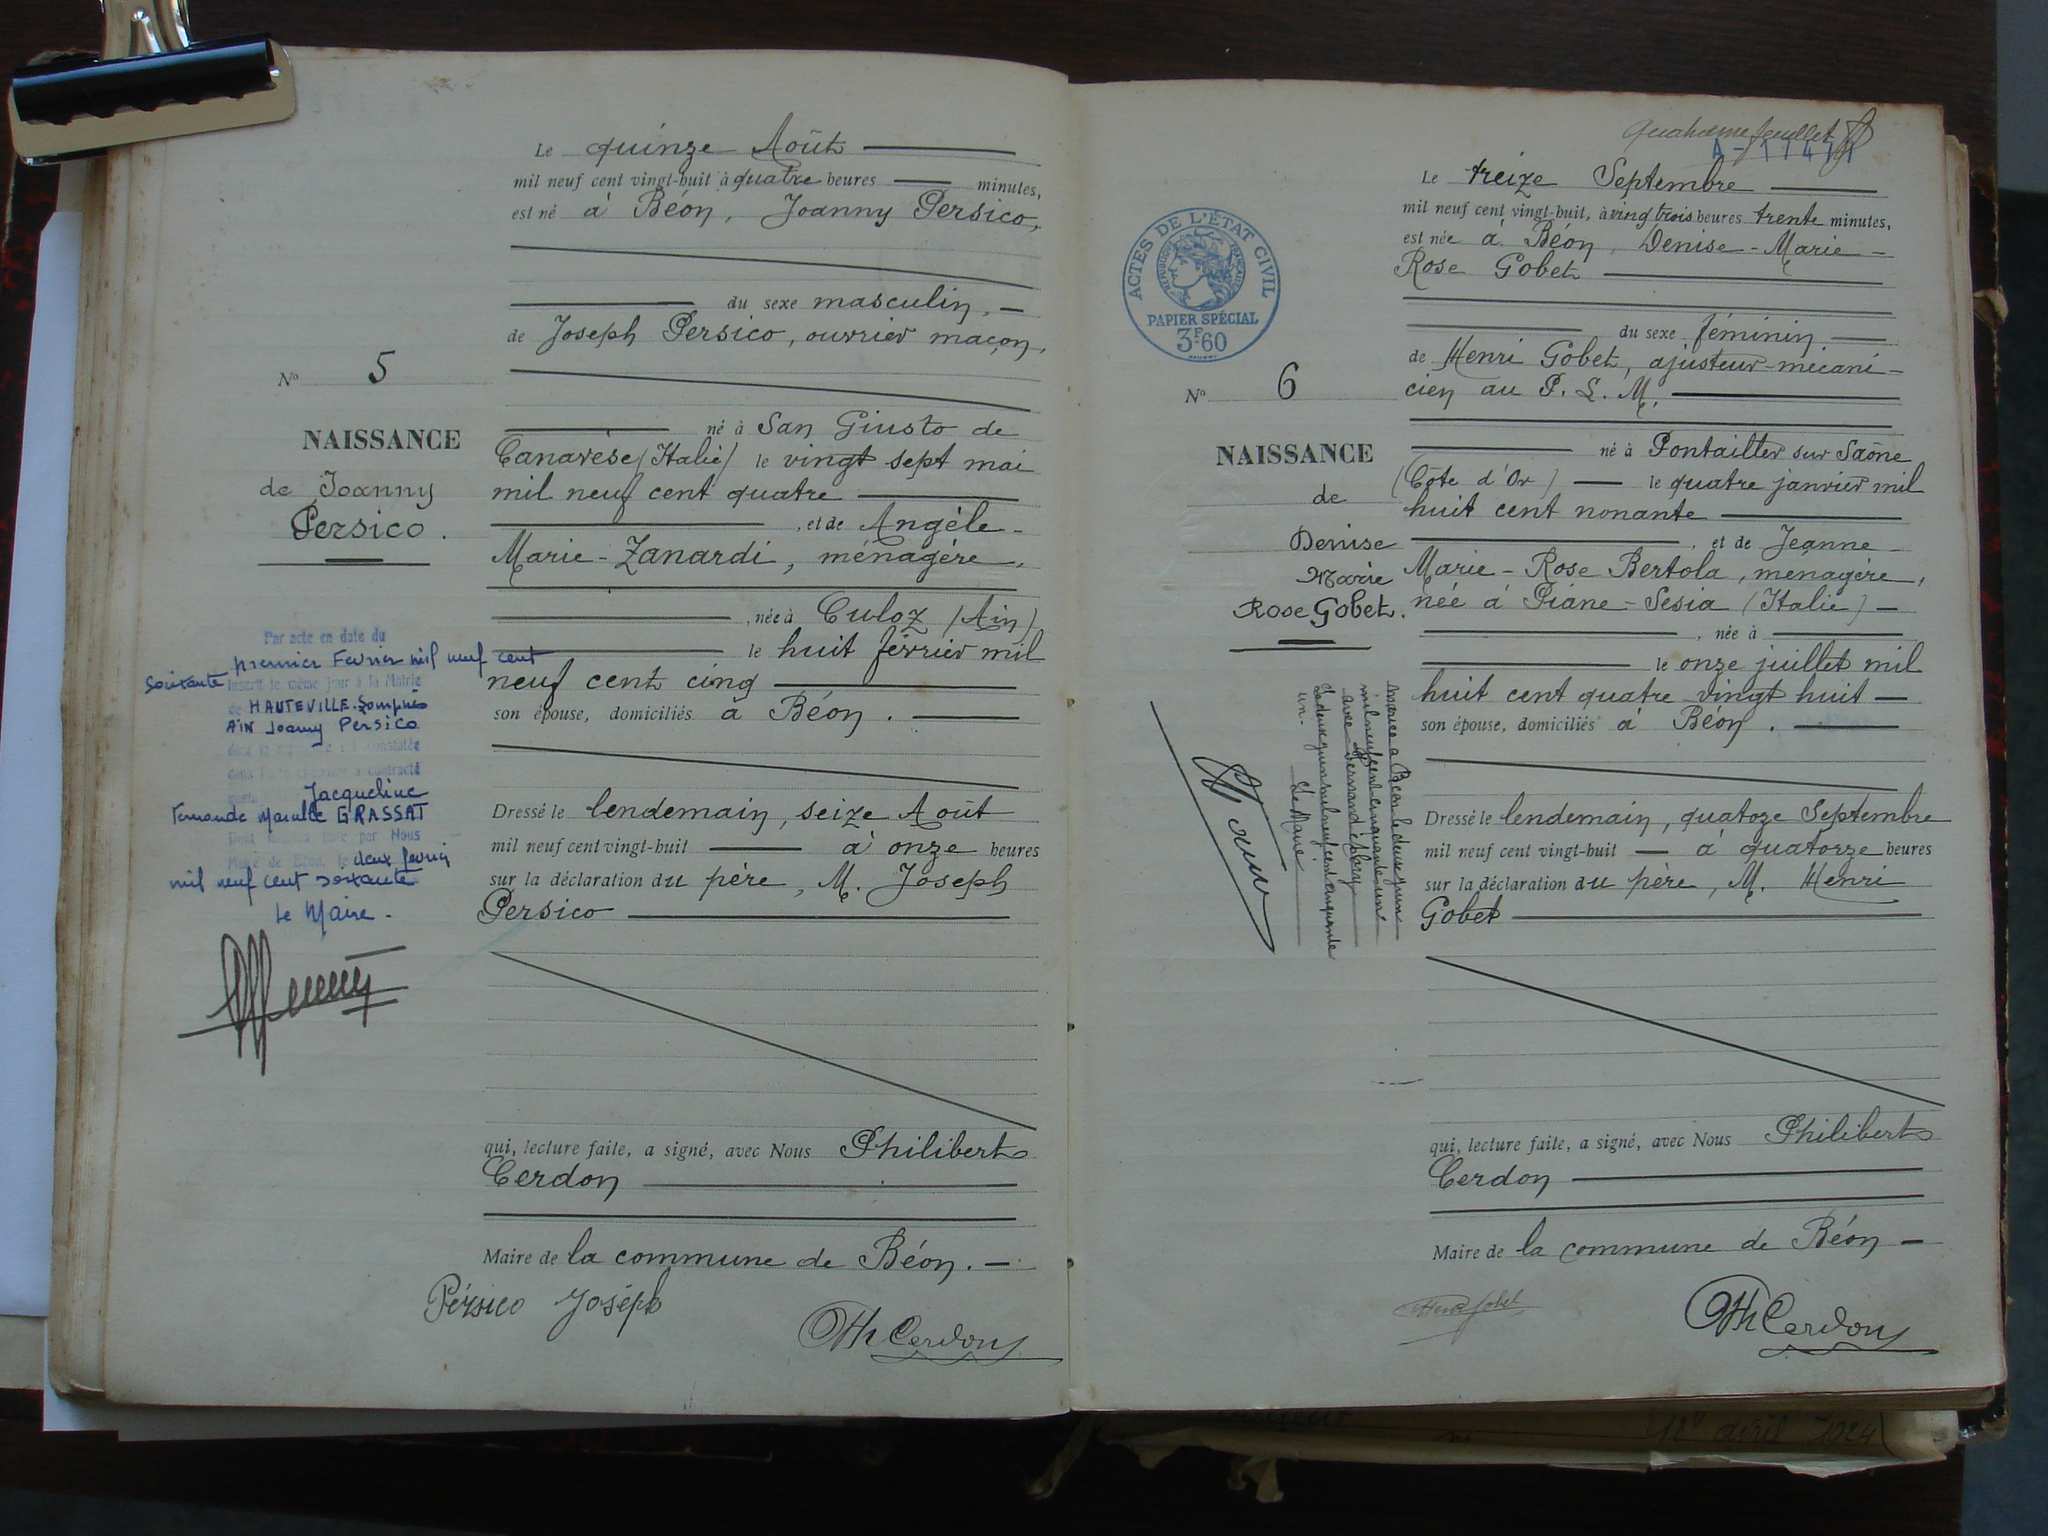 Le quinze Août
mil neuf cent vingt-huit à quatre heures minutes,
est né à Béon, Joanny Persico,
du sexe masculin,
de Joseph Persico, ouvrier maçon,
né à San Giusto de
Canavèse (Italie) le vingt sept mai
mil neuf cent quatre
, et de Angèle-
Marie-Zanardi, ménagère,
, née à Culoz (Ain)
le huit février mil
neuf cent cinq
son épouse, domiciliés à Béon.
Dressé le lendemain, seize Août
mil neuf cent vingt-huit à onze heures
sur la déclaration du père, M. Joseph
Persico
qui, lecture faite, a signé, avec Nous Philibert
Cerdon
Maire de la commune de Béon.
Pérsico Joséph
Ph Cerdon
No 5
NAISSANCE
de Joanny
Persico.
Par acte en date du
premier Fevrier mil neuf cent
soixante inscrit le même jour à la Mairie
de HAUTEVILLE-Lompnès
AIN Joanny Persico
dans
a contracté
Jacqueline
Fernande Marcelle GRASSAT
par Nous
Maire de Béon, le deux fevrier
mil neuf cent soixante
Le Maire -
Quatrième feuillet
Le treize Septembre
mil neuf cent vingt-huit, à vingt trois heures trente minutes,
est née à Béon, Denise-Marie-
Rose Gobet
du sexe féminin
de Henri Gobet, ajusteur-mécani-
cien au P. L. M.
né à Pontailler sur Saône
(Côte d'Or) le quatre janvier mil
huit cent nonante
, et de Jeanne-
Marie-Rose Bertola, ménagère,
née à Piane-Sesia (Italie)
, née à
le onze juillet mil
huit cent quatre vingt huit
son épouse, domiciliés à Béon.
Dressé le lendemain, quatoze Septembre
mil neuf cent vingt-huit à quatorze heures
sur la déclaration du père, M. Henri
Gobet
qui, lecture faite, a signé, avec Nous Philibert
Cerdon
Maire de la commune de Béon
Henri Gobet
Ph Cerdon
ACTES DE L'ÉTAT CIVIL
RÉPUBLIQUE FRANÇAISE
PAPIER SPÉCIAL
3F.60
No 6
NAISSANCE
de
Denise
Marie
Rose Gobet.
Mariée à Béon le deux juin
mil neuf cent cinquante un
avec Fernand
Le deux juin mil neuf cent cinquante
un. Le Maire
avril 1924